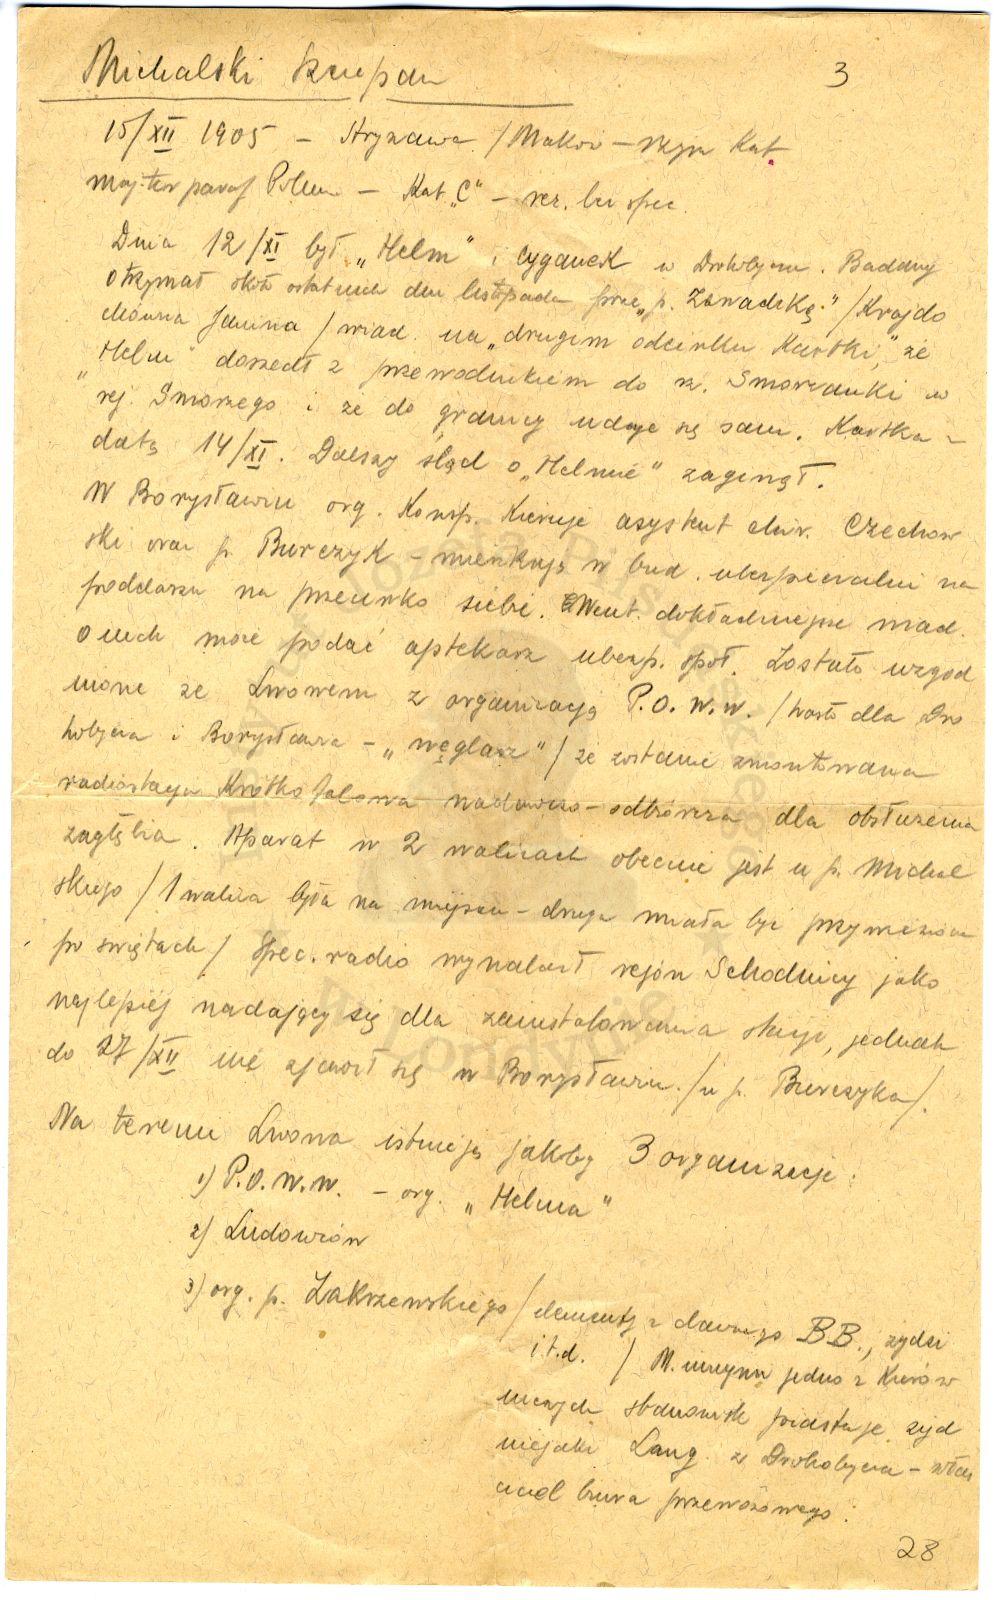 Michalski Szczepan
3
15/XII 1905 – Stryszawa /Maków – rzym Kat
majster paraf Polmin – Kat „C" – rez. bez spec.
Dnia 12/XI był „Helm" i Cyganek w Drohobyczu. Badany
otrzymał około ostatnich dni listopada przez „p. Zawadzką." /Krajdo
chówna Janina / wiad. na „drugim odcinku Kartki", że
„Helm" doszedł z przewodnikiem do rz. Smorzanki w
rej. Smorzego i że do granicy udaje się sam. Kartka –
datą 14/XI. Dalszy ślad o „Helmie" zaginął.
W Borysławiu org. Konsp. Kieruje asystent chir. Czechow
ski oraz p. Burczyk – mieszkają w bud. ubezpieczalni na
poddaszu na przeciwko siebie. Ewent. dokładniejsze wiad.
o nich może podać aptekarz ubezp. społ. Zostało uzgod
nione ze Lwowem z organizacją P.O.W.W. /hasło dla Dro
hobycza i Borysławia – „węglarz" / że zostanie zmontowana
radiostacja Krótkofalowa nadawczo-odbiorcza dla obsłużenia
zagłębia. Aparat w 2 walizach obecnie jest u p. Michal
skiego / 1 waliza była na miejscu – druga miała być przywieziona
po świętach / Spec. radio wynalazł rejon Schodnicy jako
najlepiej nadający się dla zainstalowania stacji, jednak
do 27/XII nie zjawił się w Borysławiu. /u p. Burczyka/.
Na terenie Lwowa istnieją jakby 3 organizacje:
1/ P.O.W.W. – org. „Helma"
2/ Ludowców
3/ org. p. Zakrzewskiego / elementy z dawnego BB., żydzi
i.t.d. / M. innymi jedno z Kierow
niczych stanowisk piastuje żyd
niejaki Lang z Drohobycza – właś
ciciel biura przewozowego.
28
Józefa Piłsudskiego
w Londynie